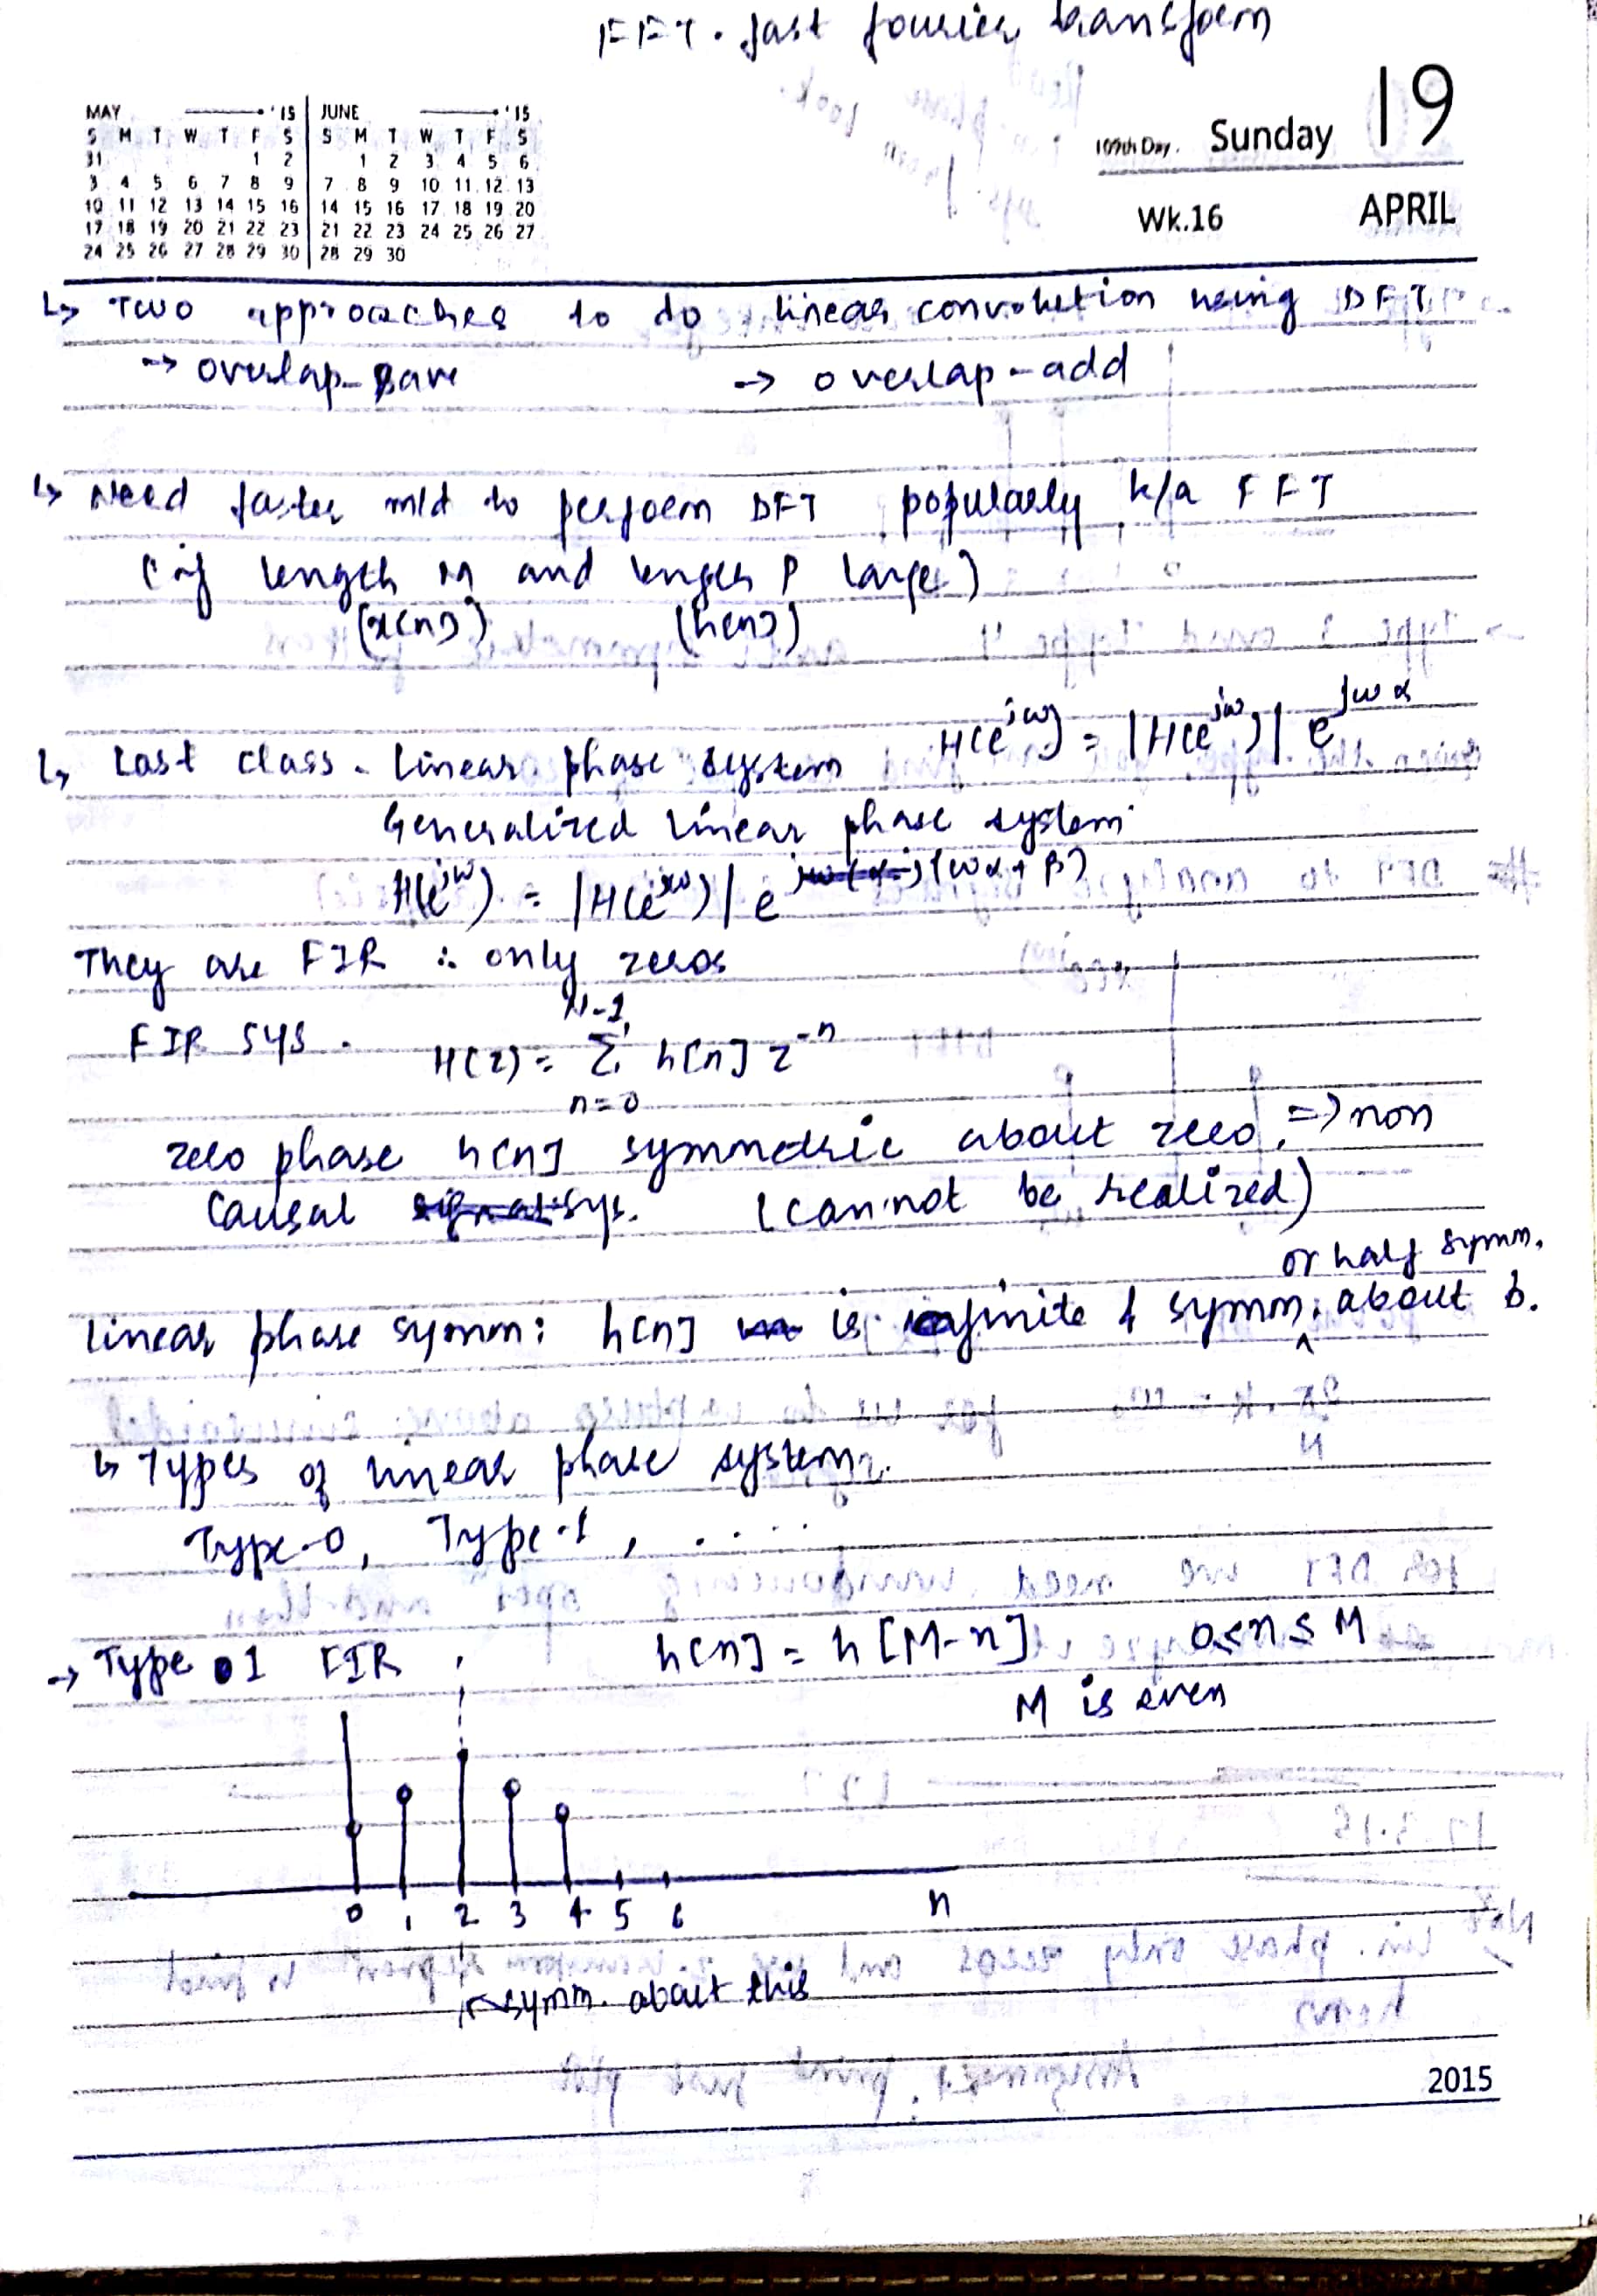 FFT. fast fourier transform
MAY '15 JUNE '15
S M T W T F S S M T W T F S
31 1 2 1 2 3 4 5 6
3 4 5 6 7 8 9 7 8 9 10 11 12 13
10 11 12 13 14 15 16 14 15 16 17 18 19 20
17 18 19 20 21 22 23 21 22 23 24 25 26 27
24 25 26 27 28 29 30 28 29 30
109th Day. Sunday 19
Wk.16 APRIL
↳ Two approaches to do linear convolution using DFT
→ overlap-save → overlap-add
↳ Need faster mtd to perform DFT popularly k/a FFT
(if length M and length P large)
(x[n]) (h[n])
↳ Last class - linear phase system H(e^{jω}) = |H(e^{jω})| e^{jωα}
Generalized linear phase system
H(e^{jω}) = |H(e^{jω})| e^{j(ωα+β)}
They are FIR ∴ only zeros
FIR sys. H(z) = Σ_{n=0}^{N-1} h[n] z^{-n}
zero phase h[n] symmetric about zero. => non
causal sys. (cannot be realized)
or half symm.
linear phase symm: h[n] is finite & symm. about
↳ Types of linear phase system.
Type-0, Type-1, .....
→ Type 1 FIR h[n] = h[M-n] 0≤n≤M
M is even
0 1 2 3 4 5 6 n
symm. about this
2015